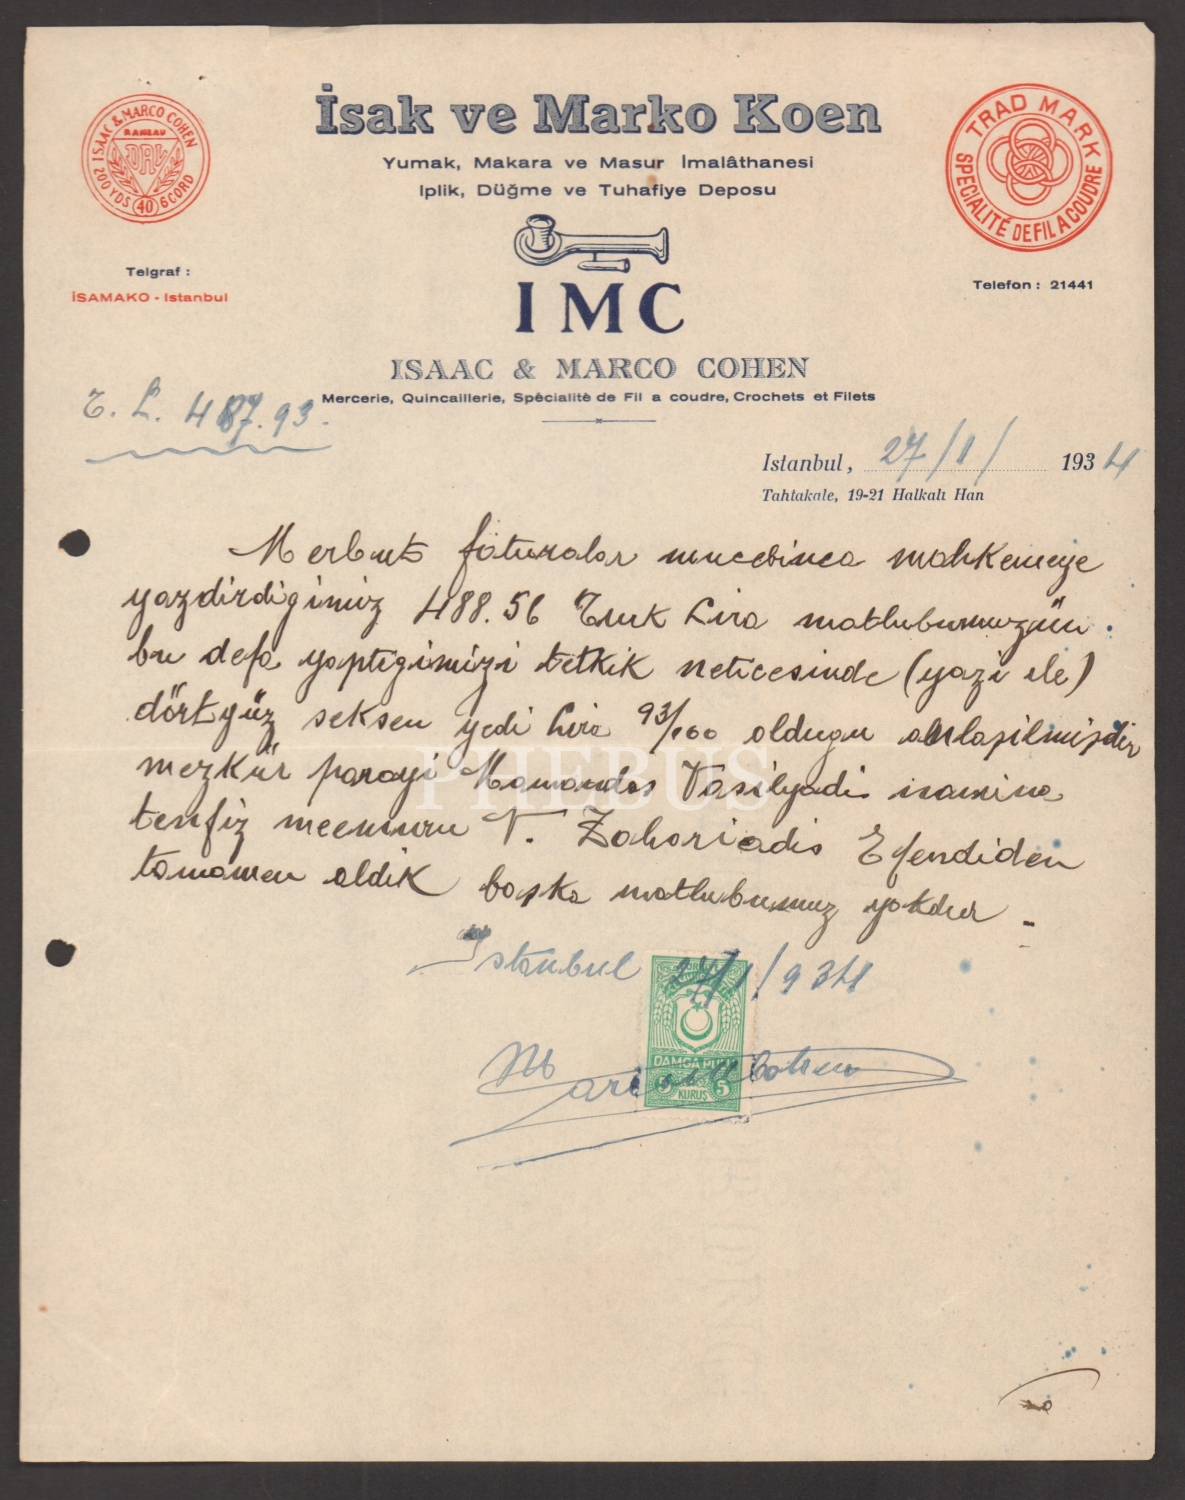 İsak ve Marko Koen
Yumak, Makara ve Masur İmalâthanesi
Iplik, Düğme ve Tuhafiye Deposu
ISAAC & MARCO COHEN
RAMEAU
DAL
200 YDS 40 6 CORD
TRAD MARK
SPECIALITÉ DE FIL A COUDRE
Telgraf :
İSAMAKO - Istanbul
Telefon : 21441
IMC
ISAAC & MARCO COHEN
Mercerie, Quincaillerie, Spécialité de Fil a coudre, Crochets et Filets
T. L. 487.93.
Istanbul, 27/1/ 1934
Tahtakale, 19-21 Halkalı Han
Merbut faturalar mucebince mahkemeye
yazdirdigimiz 488.56 Turk Lira matlubumuzün
bu defa yaptigimizi tetkik neticesinde (yazi ile)
dörtyüz seksen yedi Lira 93/100 oldugu anlaşilmişdir
mezkür parayi Vasilyadis namina
tenfiz meemuru V. Zahariadis Efendiden
tamamen aldik başka matlubumuz yokdur -
Istanbul 27/1/934
DAMGA PULU
5 KURUŞ 5
Marco Cohen
PHEBUS